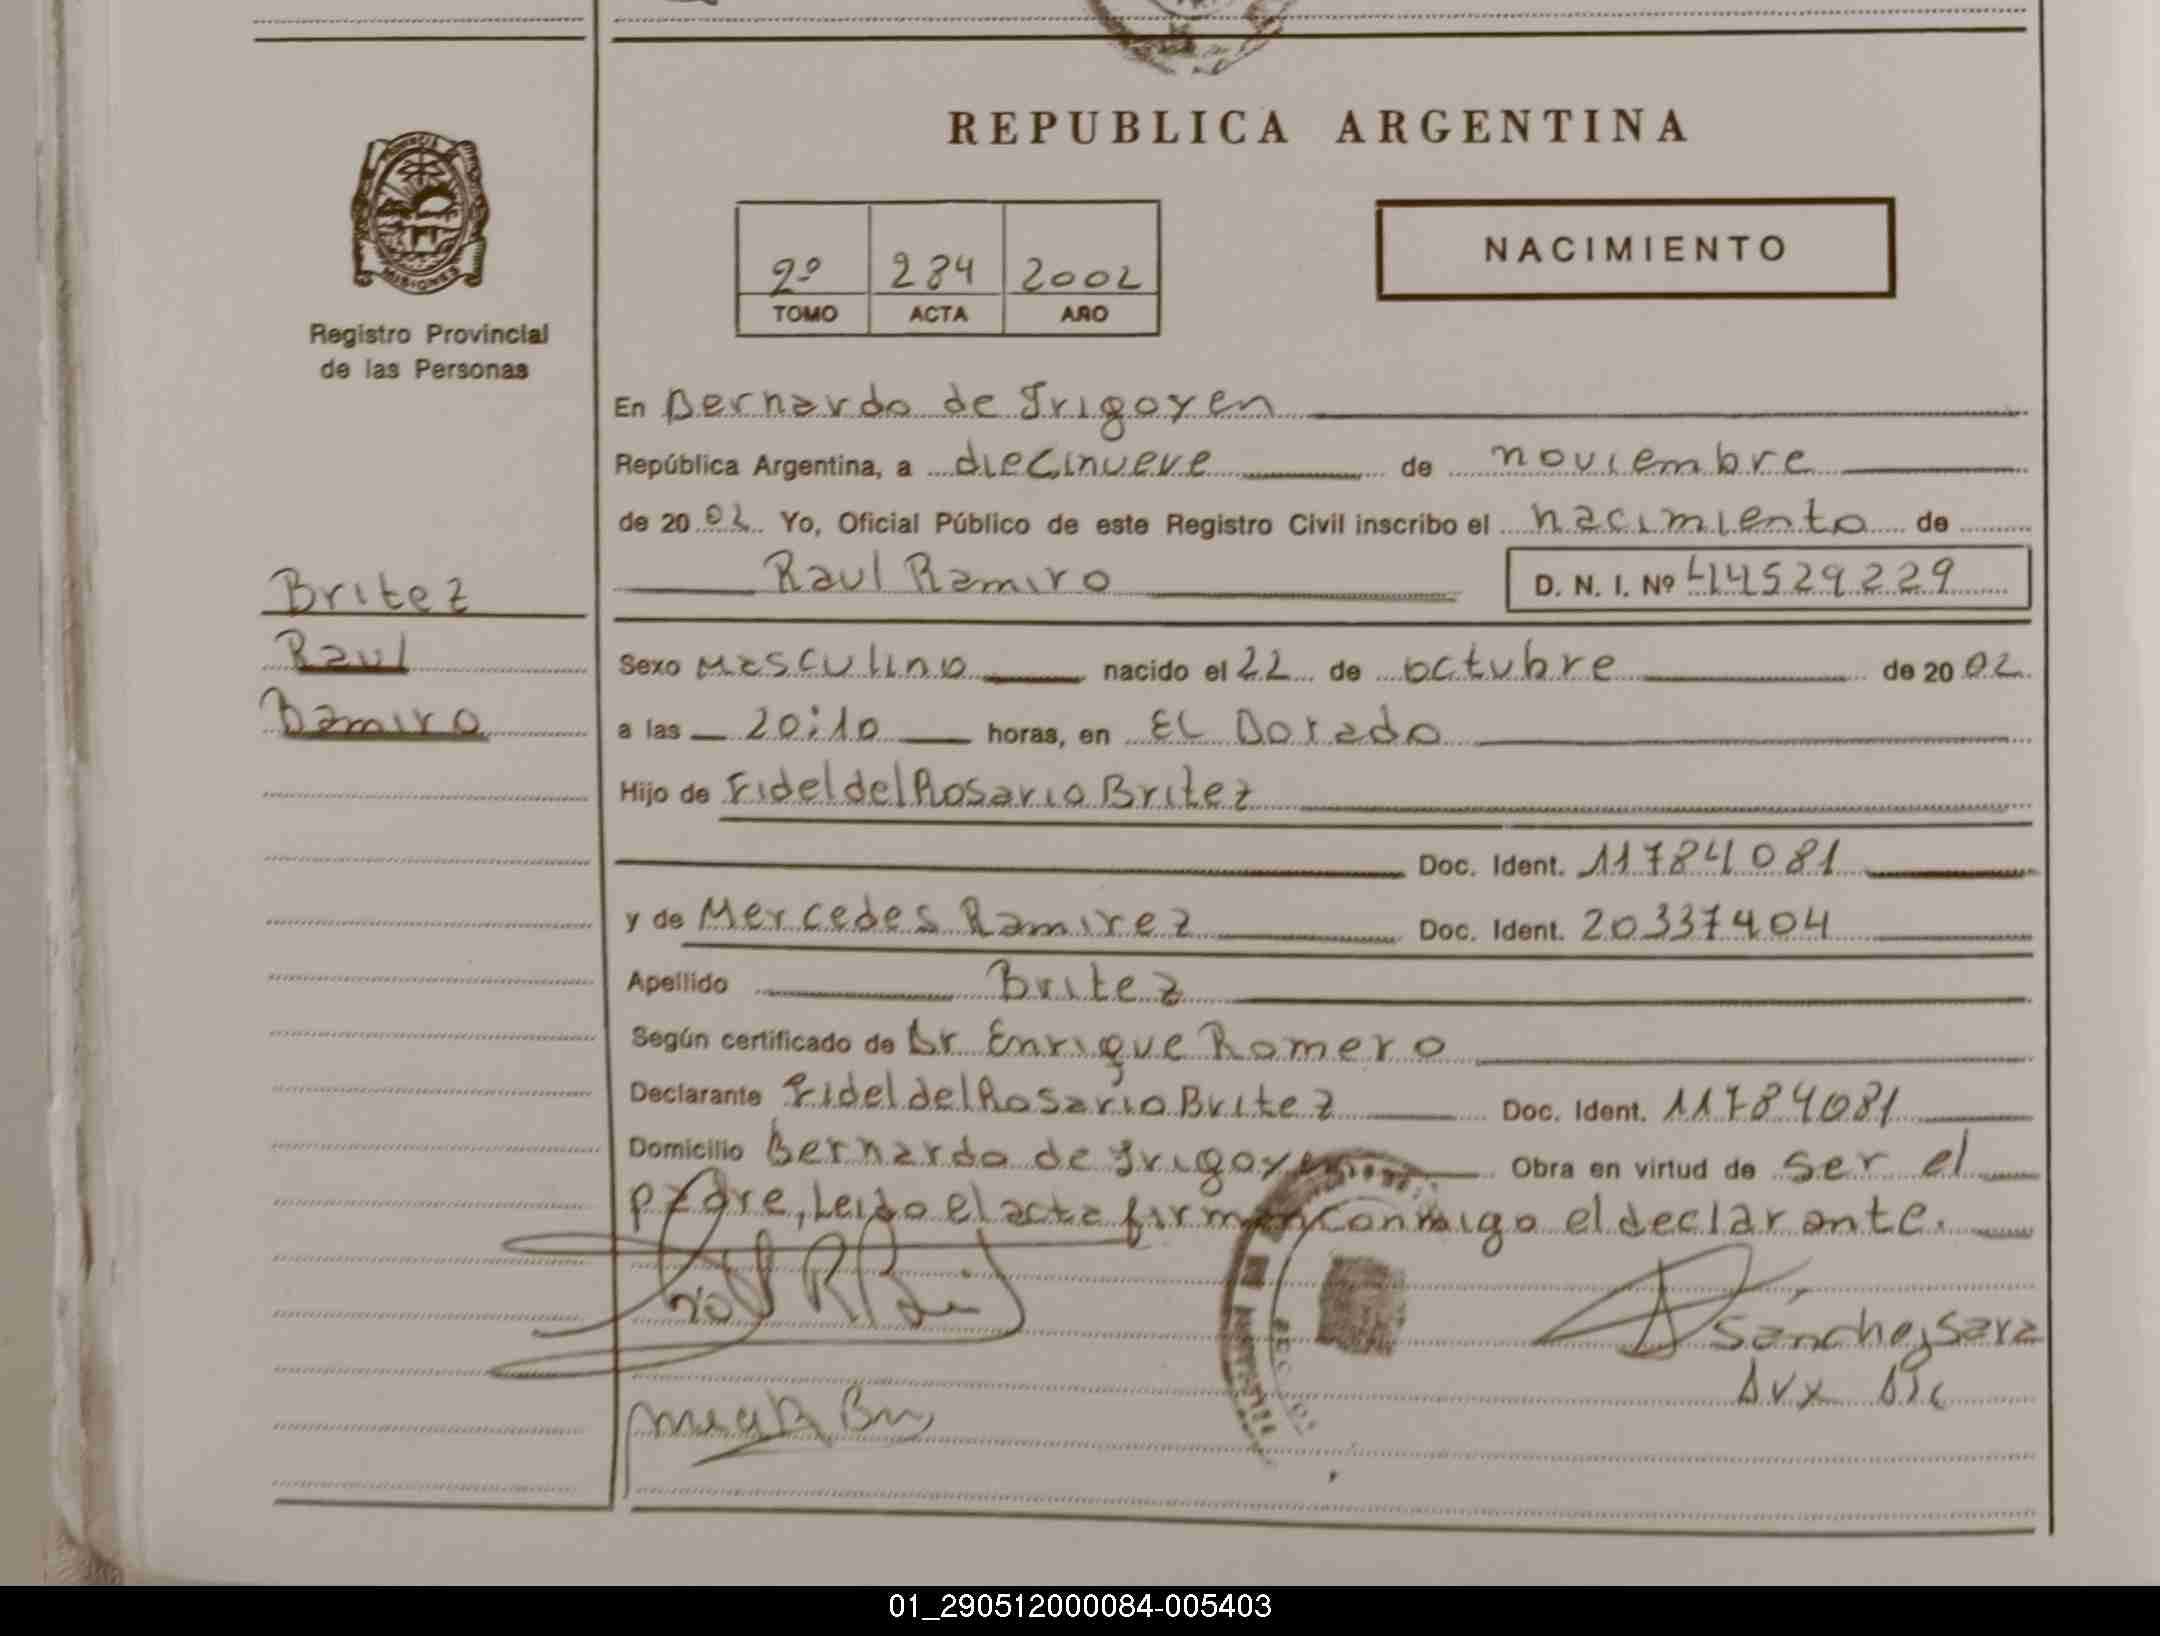 REPUBLICA ARGENTINA
MISIONES
Registro Provincial
de las Personas
2º 284 2002
TOMO ACTA AÑO
NACIMIENTO
En Bernardo de Irigoyen
República Argentina, a diecinueve de noviembre
de 20 02 Yo, Oficial Público de este Registro Civil inscribo el nacimiento de
Raul Ramiro D. N. I. Nº 44529229
Britez
Raul
Ramiro
Sexo Masculino nacido el 22 de octubre de 20 02
a las 20:10 horas, en El Dorado
Hijo de Fidel del Rosario Britez
Doc. Ident. 11784081
y de Mercedes Ramirez Doc. Ident. 20337404
Apellido Britez
Según certificado de Dr Enrique Romero
Declarante Fidel del Rosario Britez Doc. Ident. 11784081
Domicilio Bernardo de Irigoyen Obra en virtud de ser el
padre, Leido el acta firman conmigo el declarante.
Sánchez Sara
01_290512000084-005403